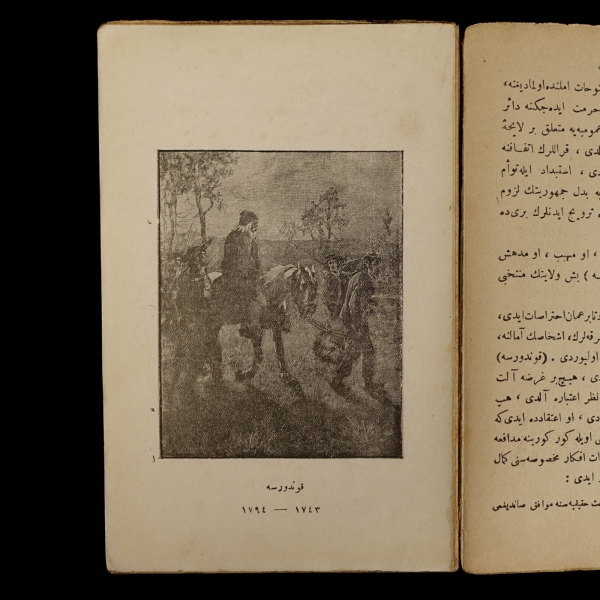 قوندورسه
١٧٤٣ — ١٧٩٤
توحات املنده اولمادیغنه،
حرمت ایده‌جكنه دائر
عمومیه‌یه متعلق بر لایحهٔ
لدی ، قراللرك اتفاقنه
دی ، استبداد ایله توأم
یه بدل جمهوریتك لزوم
ترویج ایدنلرك بری ده
، او مهیب ، او مدهش
ـه ) بش ولایتك منتخبی
احتراصات ایدی،
رقه‌لرك، اشخاصك آمالنه،
اولیوردی . (قوندورسه)
دی ، هیچ بر غرضه آلت
نظر اعتباره آلدی ، هپ
دی ، او اعتقادده ایدی كه
ی اویله كور كورینه مدافعه
ات افكار مخصوصه‌سنی كمال
ایدی :
حقیقیه‌سنه موافق صاندیغی